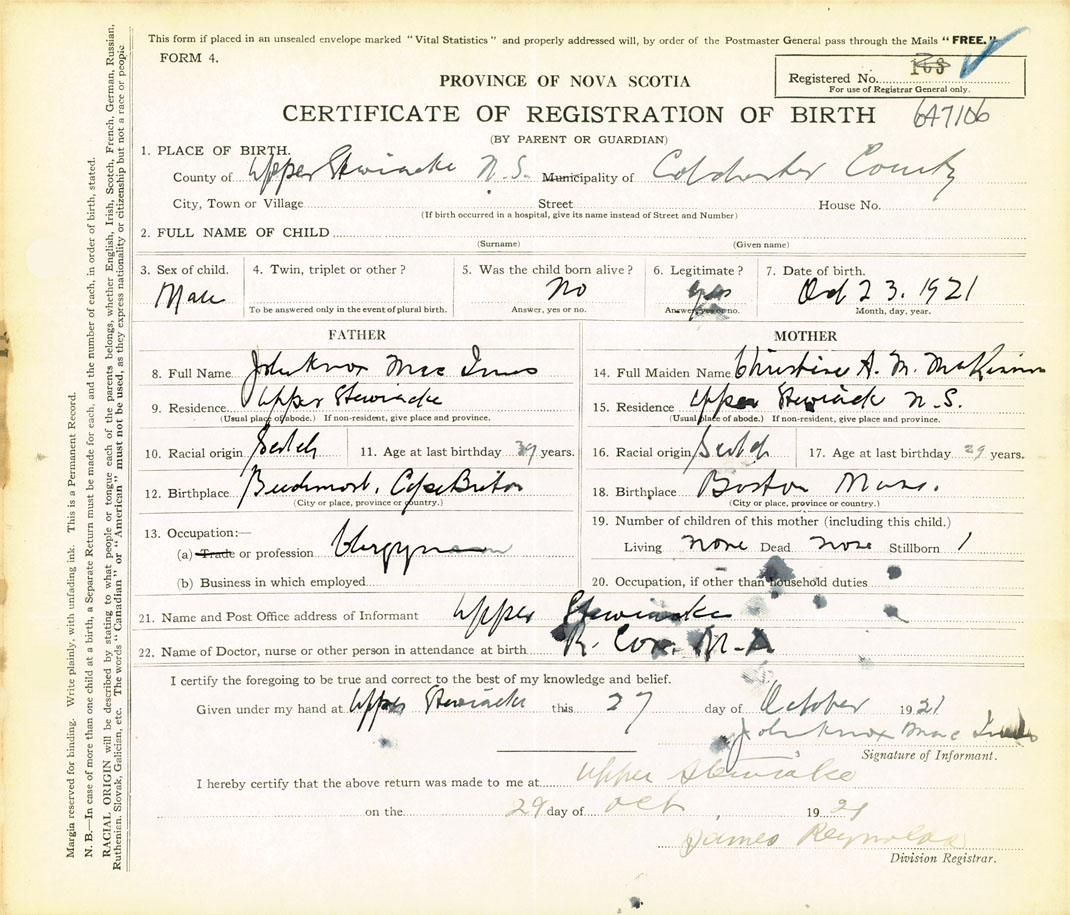 This form if placed in an unsealed envelope marked "Vital Statistics" and properly addressed will, by order of the Postmaster General pass through the Mails "FREE."
FORM 4.
PROVINCE OF NOVA SCOTIA
Registered No.
For use of Registrar General only.
CERTIFICATE OF REGISTRATION OF BIRTH
647106
(BY PARENT OR GUARDIAN)
1. PLACE OF BIRTH.
County of Upper Stewiacke N.S. Municipality of Colchester County
City, Town or Village Street House No.
(If birth occurred in a hospital, give its name instead of Street and Number)
2. FULL NAME OF CHILD
(Surname) (Given name)
3. Sex of child. 4. Twin, triplet or other? 5. Was the child born alive? 6. Legitimate? 7. Date of birth.
Male No yes Oct 23. 1921
To be answered only in the event of plural birth. Answer, yes or no. Answer, yes or no. Month, day, year.
FATHER
8. Full Name John Knox Mac Innes
9. Residence Upper Stewiacke
(Usual place of abode.) If non-resident, give place and province.
10. Racial origin Scotch 11. Age at last birthday 39 years.
12. Birthplace Cape Breton
(City or place, province or country.)
13. Occupation:—
(a) Trade or profession Clergyman
(b) Business in which employed
MOTHER
14. Full Maiden Name Christine A. M. McKinnon
15. Residence Upper Stewiacke N.S.
(Usual place of abode.) If non-resident, give place and province.
16. Racial origin Scotch 17. Age at last birthday 29 years.
18. Birthplace Boston Mass.
(City or place, province or country.)
19. Number of children of this mother (including this child.)
Living none Dead none Stillborn 1
20. Occupation, if other than household duties
21. Name and Post Office address of Informant Upper Stewiacke
22. Name of Doctor, nurse or other person in attendance at birth. R. Cox. M.D
I certify the foregoing to be true and correct to the best of my knowledge and belief.
Given under my hand at Upper Stewiacke this 27 day of October 1921
John Knox Mac Innes
Signature of Informant.
I hereby certify that the above return was made to me at Upper Stewiacke
on the 29 day of Oct 1921
James Reynolds
Division Registrar.
Margin reserved for binding. Write plainly, with unfading ink. This is a Permanent Record.
N. B.—In case of more than one child at a birth, a Separate Return must be made for each, and the number of each, in order of birth, stated.
RACIAL ORIGIN will be described by stating to what people or tongue each of the parents belongs, whether English, Irish, Scotch, French, German, Russian,
Ruthenian, Slovak, Galician, etc. The words "Canadian" or "American" must not be used, as they express nationality or citizenship but not a race or people